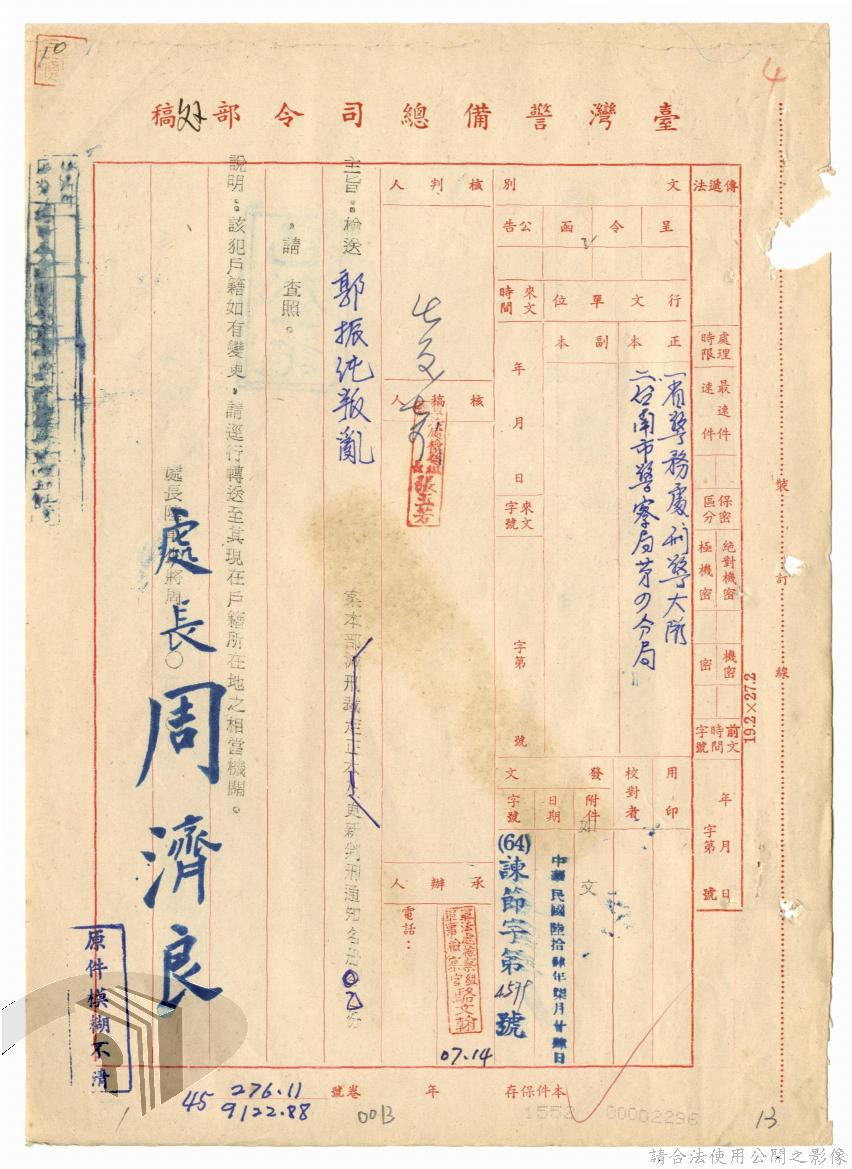 臺灣警備總司令部稿
傳遞法
處理時限
最速件
速件
保密區分
絕對機密
極機密
機密
密
前文時間字號
年 月 日
字第 號
文別
呈
令
函
公告
行文單位
正本
副本
一省警務處刑警大隊
二台南市警察局第四分局
來文時間
年 月 日
來文字號
字第 號
用印
校對者
發文
附件
如文
日期
中華民國陸拾肆年柒月廿肆日
字號
(64)諫節字第4579號
核判人
核稿人
張玉若
承辦人
電話：
軍法處檢察組
軍事檢察官駱文翰
07.14
主旨：檢送 郭振純叛亂 案本部減刑裁定正本及更新判刑通知名冊乙份
，請 查照。
說明：該犯戶籍如有變更，請逕行轉送至其現在戶籍所在地之相當機關。
處長周濟良
原件模糊不清
本件保存 年 卷號
276.11
45 9122.88
00B
1552 00002296
13
4
10
裝訂線
19.2×27.2
請合法使用公開之影像